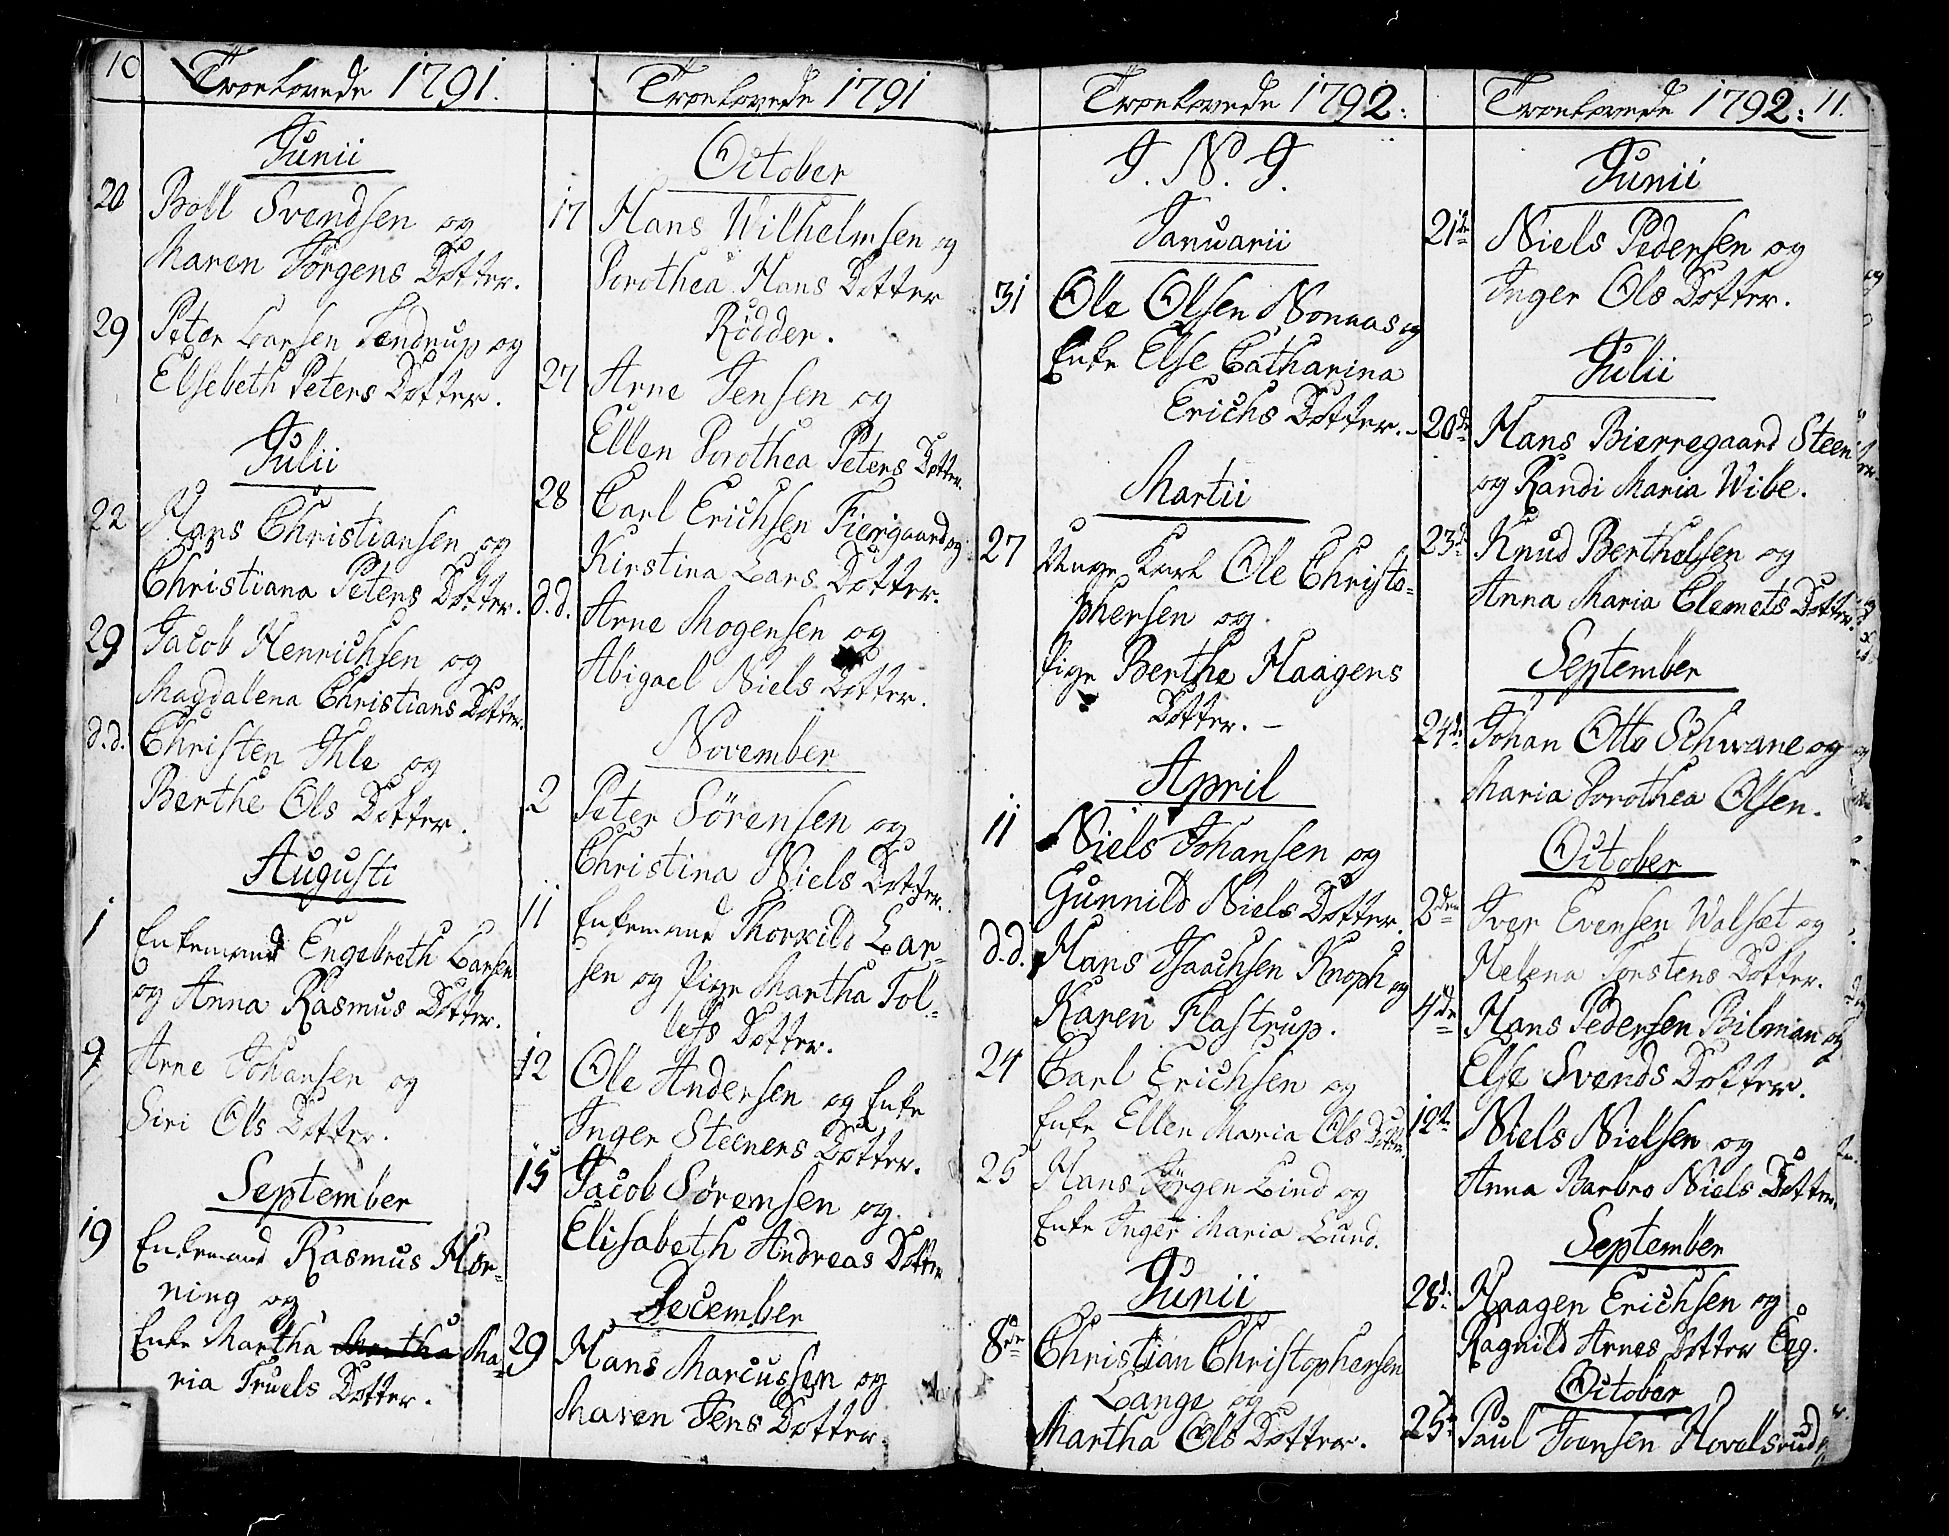 10
Troelovede 1791.
Junii
20 Boll Svendsen og
Maren Jörgens Dotter.
29 Peter Larsen Tendrup og
Elsebeth Peters Dotter.
Julii
22 Hans Christiansen og
Christiana Peters Dotter.
29 Jacob Henrichsen og
Magdalena Christians Dotter.
d.d. Christen Ihle og
Berthe Ols Dotter.
Augusti
1 Enkemand Engebreth Larsen
og Anna Rasmus Dotter.
9 Arne Johansen og
Siri Ols Dotter.
September
19 Enkemand Rasmus Hor-
ning og
Enke Martha Martha Ma-
ria Truels Dotter.
Troelovede 1791
October
17 Hans Wilhelmsen og
Dorothea Hans Dotter
Rödder.
27 Arne Jensen og
Ellen Dorothea Peters Dotter.
28 Carl Erichsen Fiergaard og
Kirstina Lars Dotter.
d.d. Arne Mogensen og
Abigael Niels Dotter.
November
2 Peter Sörensen og
Christina Niels Dotter.
11 Enkemand Thorkild Lar-
sen og Pige Martha Tol-
lefs Dotter.
12 Ole Andersen og Enke
Inger Steeners Dotter.
15 Jacob Sörensen og
Elisabeth Andreas Dotter
December
29 Hans Marcussen og
Maren Jens Dotter
Troelovede 1792:
J. N. J.
Januarii
31 Ole Olsen Nonaas og
Enke Else Catharina
Erichs Dotter.
Martii
27 Unge Karl Ole Christo-
phersen og
Pige Berthe Haagens
Dotter. –
April
11 Niels Johansen og
Gunnild Niels Dotter.
d.d. Hans Isaachsen Knoph og
Karen Flastrup.
24 Carl Erichsen og
Enke Ellen Maria Ols Dotter.
25 Hans Jörgen Lind og
Enke Inger Maria Lund.
Junii
8de Christian Christophersen
Lange og
Martha Ols Dotter.
Troelovede 1792: 11.
Junii
21de Niels Pedersen og
Inger Ols Dotter.
Julii
20de Hans Bierregaard Steen
og Randi Maria Wibe.
23de Knud Berthelsen og
Anna Maria Clemets Dotter.
September
24de Johan Otto Schwane og
Maria Dorothea Olsen.
October
2den Iver Evensen Walset og
Helena Torstens Dotter.
4de Hans Pedersen Bilman og
Else Svends Dotter.
12te Niels Nielsen og
Anna Barbro Niels Dotter.
September
28de Haagen Erichsen og
Ragnild Arnes Dotter Eeg.
October
25de Paul Iversen Hovelsrud